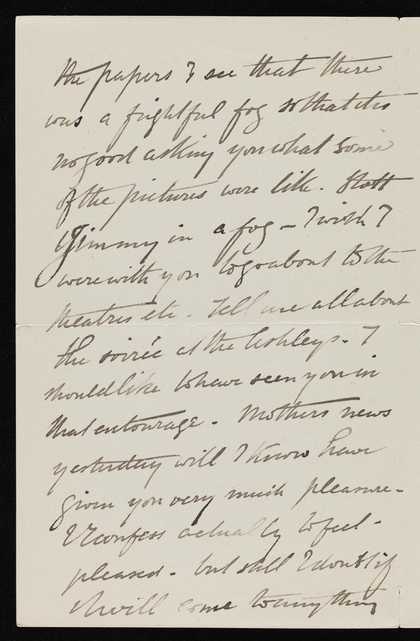 the papers I see that there
was a frightful fog so that it is
no good asking you what some
of the pictures were like.
Jimmy in a fog - I wish I
were with you to go about to the
theatres etc. Tell me all about
the soirée at the Lesleys. I
should like to have seen you in
that entourage. Mothers news
yesterday will I know have
given you very much pleasure.
I confess actually to feel
pleased - but still I doubt if
it will come to anything